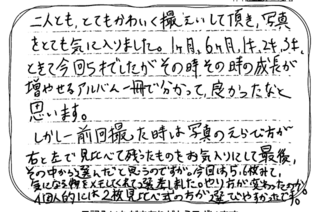 二人とも、とてもかわいく撮えいして頂き、写真
をとても気に入りました。1ヶ月、6ヶ月、1才、2才、3才、
ときて今回5才でしたがその時その時の成長が
増やせるアルバム一冊で分かって、良かったなと
思います。
しかし前回撮った時は写真のえらび方が
右と左で見比べて残ったものをお気に入りにして最後、
その中から選んだと思うのですが。今回は5,6枚みて、
気になる物をメモしてくれて選考しました。やり方が変わったのか。
個人的には2枚見比べ式の方が選びやすかったです。